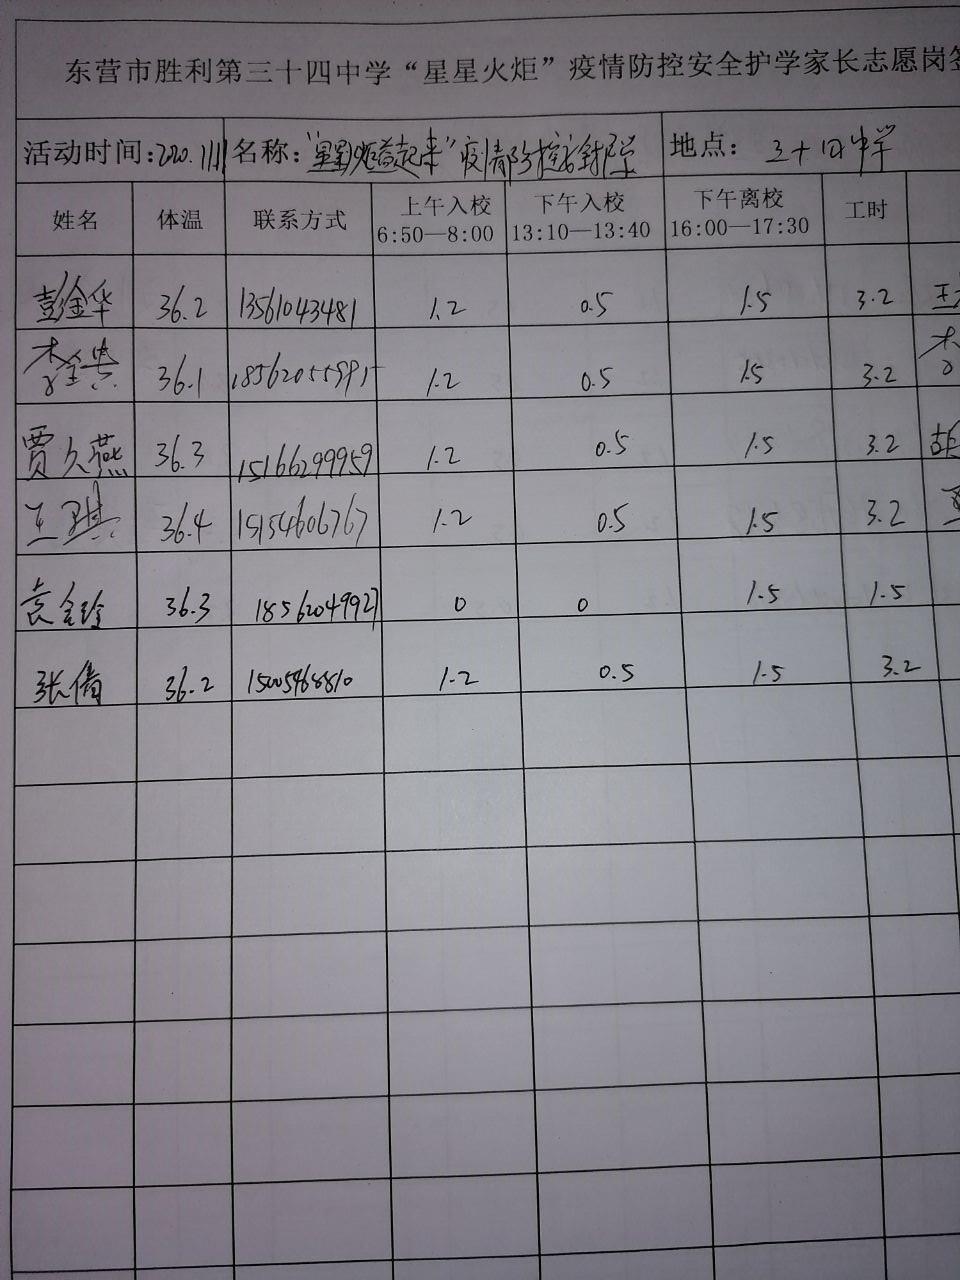 东营市胜利第三十四中学“星星火炬”疫情防控安全护学家长志愿岗
活动时间:2020.11.11 名称:“星星火炬益起来”疫情防控安全护学 地点: 三十四中学
姓名 体温 联系方式 上午入校 下午入校 下午离校 工时
6:50—8:00 13:10—13:40 16:00—17:30
彭金华 36.2 13561043481 1.2 0.5 1.5 3.2 王
李金贵 36.1 1.2 0.5 1.5 3.2 李
贾久燕 36.3 15166299959 1.2 0.5 1.5 3.2 胡
王琪 36.4 15154606767 1.2 0.5 1.5 3.2
袁金玲 36.3 18562049927 0 0 1.5 1.5
张倩 36.2 15005468810 1.2 0.5 1.5 3.2